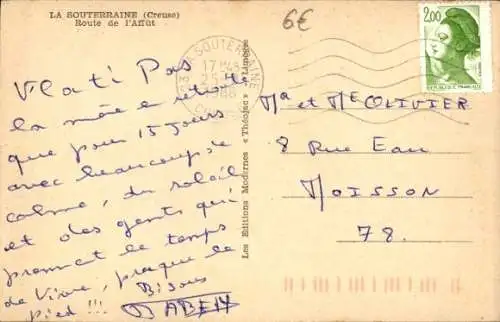 LA SOUTERRAINE (Creuse)
Route de l'Affût
6€
23 LA SOUTERRAINE
17H45
25
CREUSE
2,00
REPUBLIQUE FRANÇAISE
Vlati Pas
la mère
que pour 15 Jours
avec beaucoup de
calme, du soleil
et des gents qui
prennet le temps
de vivre, presque le
pied !!! Bisous
Les Editions Modernes « Théojac » - Limoges
Mr et Me OLIVIER
8 Rue Eau
MOISSON
78.